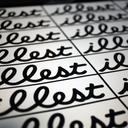 illest illest
illest illest
illest illest
illest ille
illest ill
illest il